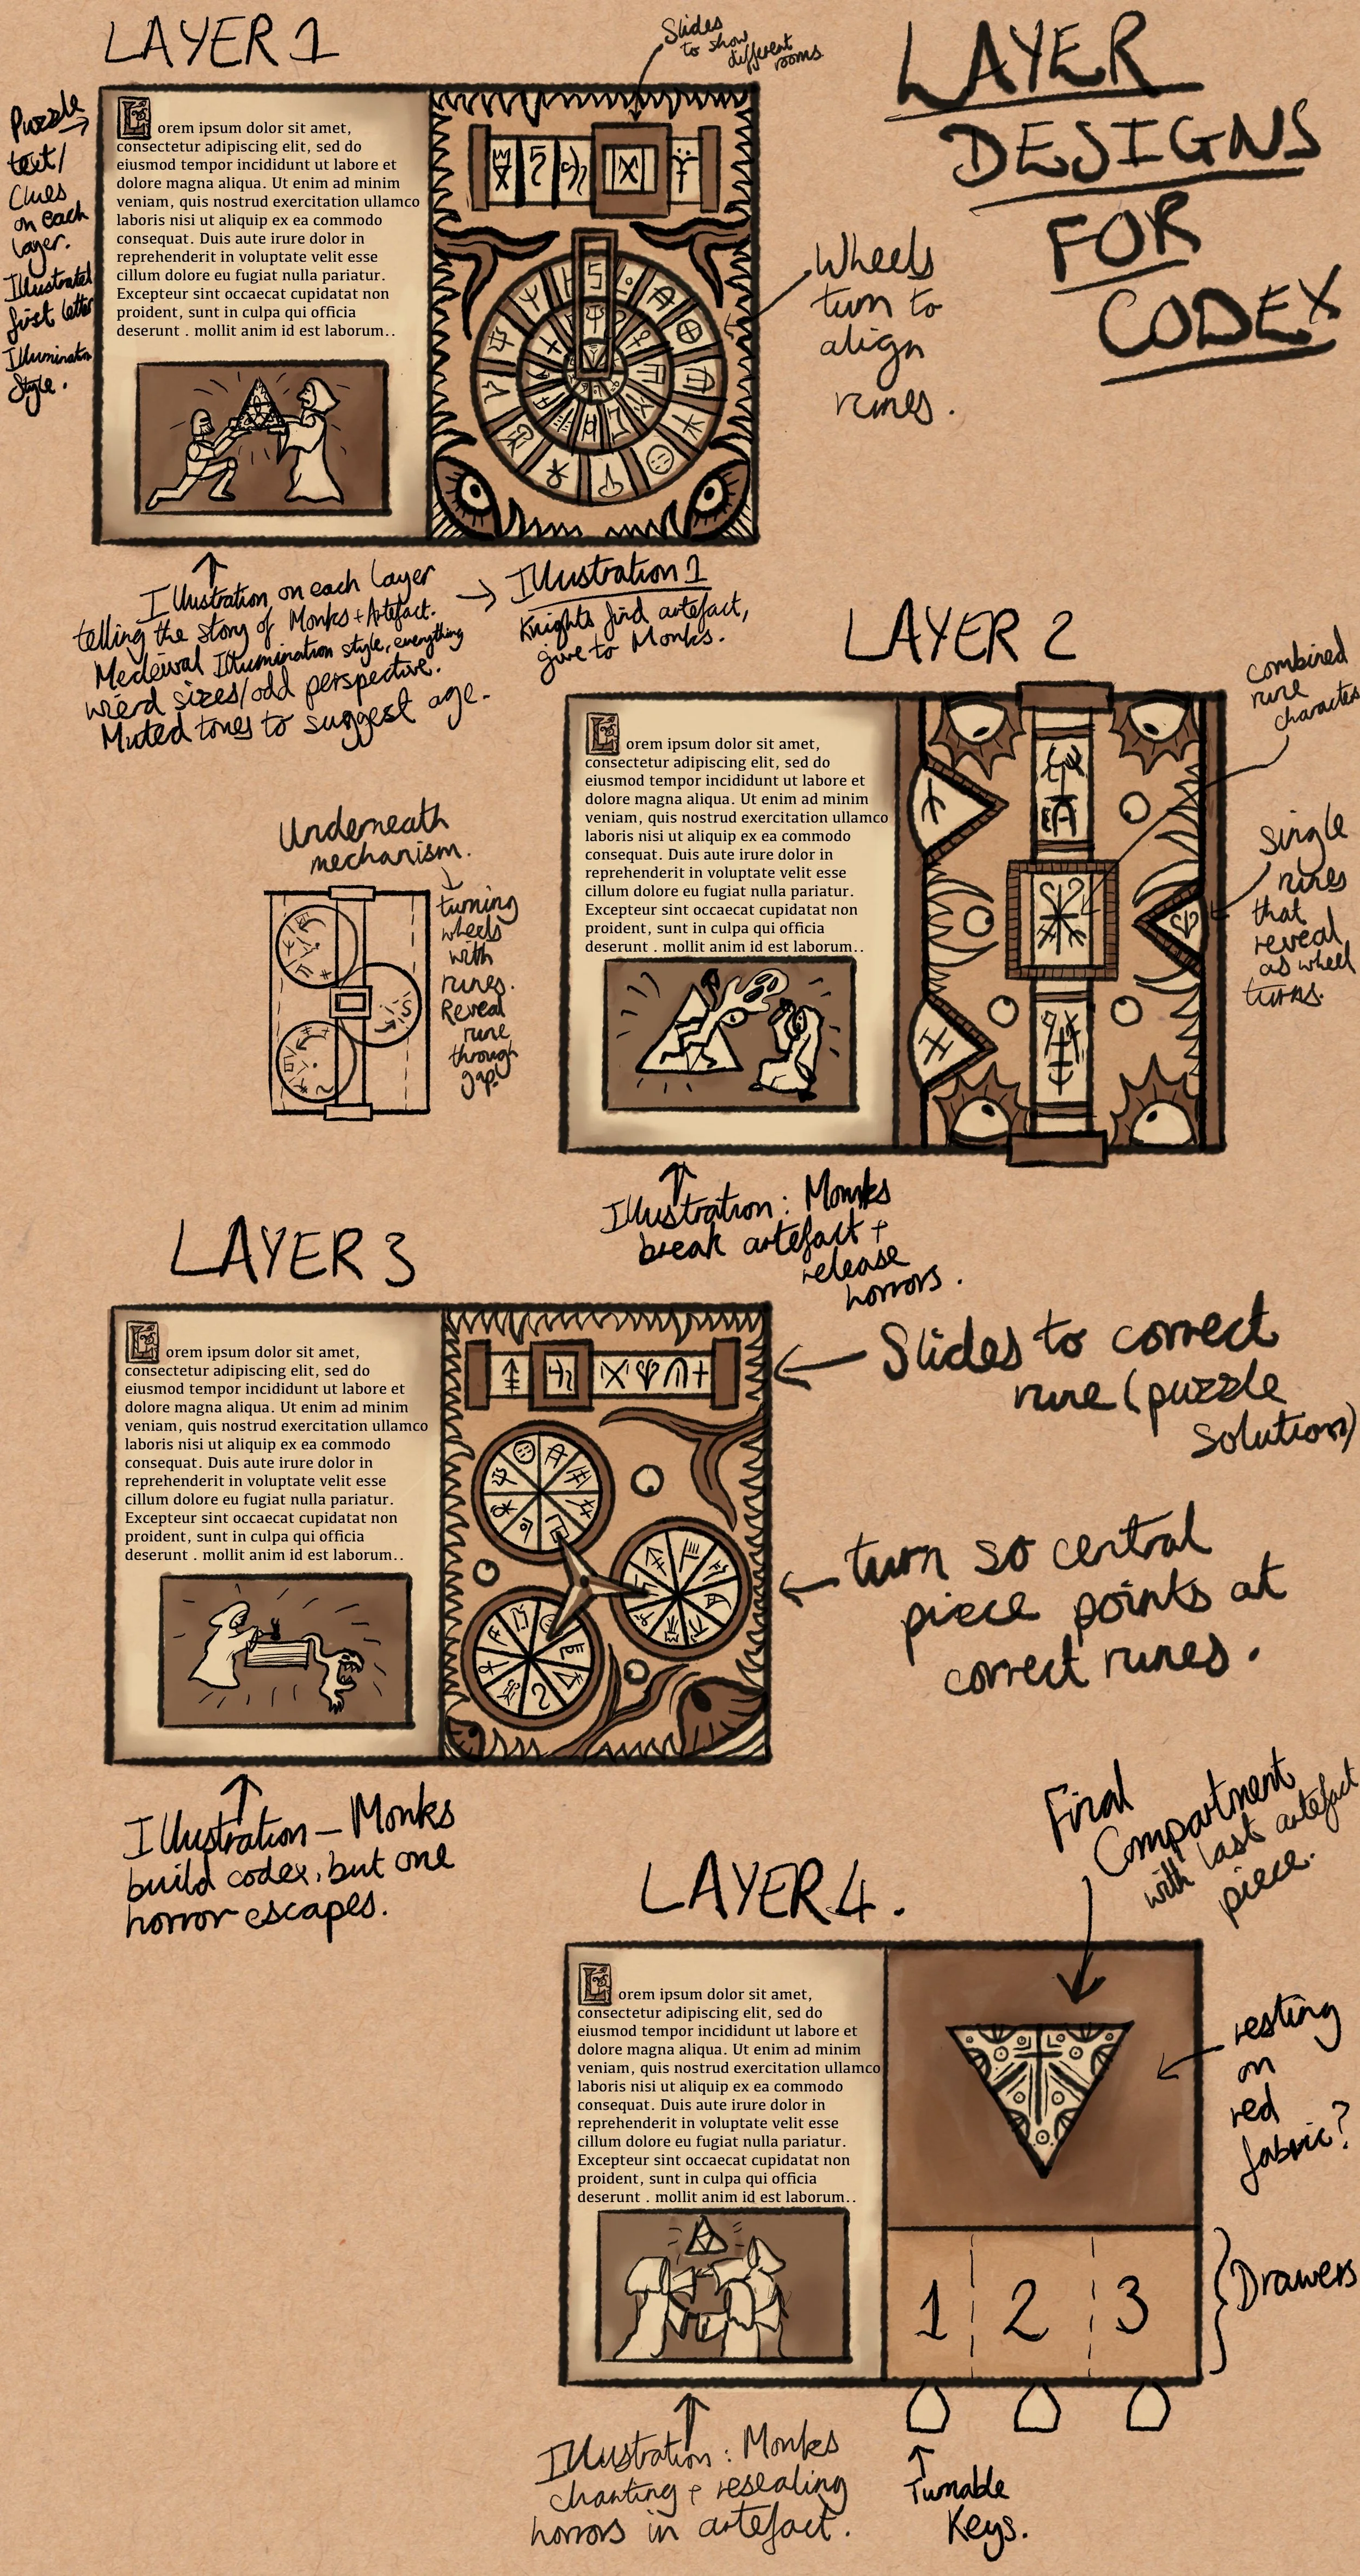 LAYER 1
Slides
to show
different
rooms
LAYER
DESIGNS
FOR
CODEX
Puzzle
text/
Clues
on each
layer.
Illustrated
first letter
Illumination
Style.
Lorem ipsum dolor sit amet,
consectetur adipiscing elit, sed do
eiusmod tempor incididunt ut labore et
dolore magna aliqua. Ut enim ad minim
veniam, quis nostrud exercitation ullamco
laboris nisi ut aliquip ex ea commodo
consequat. Duis aute irure dolor in
reprehenderit in voluptate velit esse
cillum dolore eu fugiat nulla pariatur.
Excepteur sint occaecat cupidatat non
proident, sunt in culpa qui officia
deserunt . mollit anim id est laborum..
Wheels
turn to
align
runes.
Illustration on each layer
telling the story of Monks + Artefact.
Medeival Illumination style, everything
wierd sizes/odd perspective.
Muted tones to suggest age.
Illustration 1
Knights find artefact,
give to Monks.
LAYER 2
combined
rune
character
Lorem ipsum dolor sit amet,
consectetur adipiscing elit, sed do
eiusmod tempor incididunt ut labore et
dolore magna aliqua. Ut enim ad minim
veniam, quis nostrud exercitation ullamco
laboris nisi ut aliquip ex ea commodo
consequat. Duis aute irure dolor in
reprehenderit in voluptate velit esse
cillum dolore eu fugiat nulla pariatur.
Excepteur sint occaecat cupidatat non
proident, sunt in culpa qui officia
deserunt . mollit anim id est laborum..
single
runes
that
reveal
as wheel
turns.
Underneath
mechanism.
turning
wheels
with
runes.
Reveal
rune
through
gap.
Illustration: Monks
break artefact +
release
horrors.
LAYER 3
Lorem ipsum dolor sit amet,
consectetur adipiscing elit, sed do
eiusmod tempor incididunt ut labore et
dolore magna aliqua. Ut enim ad minim
veniam, quis nostrud exercitation ullamco
laboris nisi ut aliquip ex ea commodo
consequat. Duis aute irure dolor in
reprehenderit in voluptate velit esse
cillum dolore eu fugiat nulla pariatur.
Excepteur sint occaecat cupidatat non
proident, sunt in culpa qui officia
deserunt . mollit anim id est laborum..
Slides to correct
rune (puzzle
solution)
turn so central
piece points at
correct runes.
Illustration - Monks
build codex, but one
horror escapes.
LAYER 4.
Final
Compartment
with last artefact
piece.
Lorem ipsum dolor sit amet,
consectetur adipiscing elit, sed do
eiusmod tempor incididunt ut labore et
dolore magna aliqua. Ut enim ad minim
veniam, quis nostrud exercitation ullamco
laboris nisi ut aliquip ex ea commodo
consequat. Duis aute irure dolor in
reprehenderit in voluptate velit esse
cillum dolore eu fugiat nulla pariatur.
Excepteur sint occaecat cupidatat non
proident, sunt in culpa qui officia
deserunt . mollit anim id est laborum..
resting
on
red
fabric?
1 2 3
Drawers
Illustration: Monks
chanting + resealing
horrors in artefact.
Turnable
Keys.